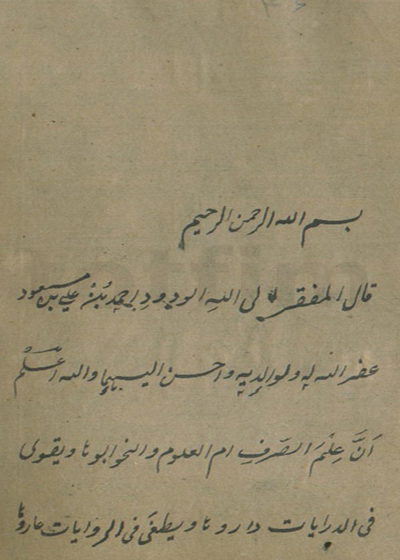 بسم الله الرحمن الرحيم
قال المفقر لى الله الودود احمد بن علي بن مسعود
غفر الله له ولوالديه واحسن اليهما واليه اعلم
انّ علم الصرف ام العلوم والنحو ابوها ويقوى
فى الدرايات داروها ويطغى فى الروايات عاروها